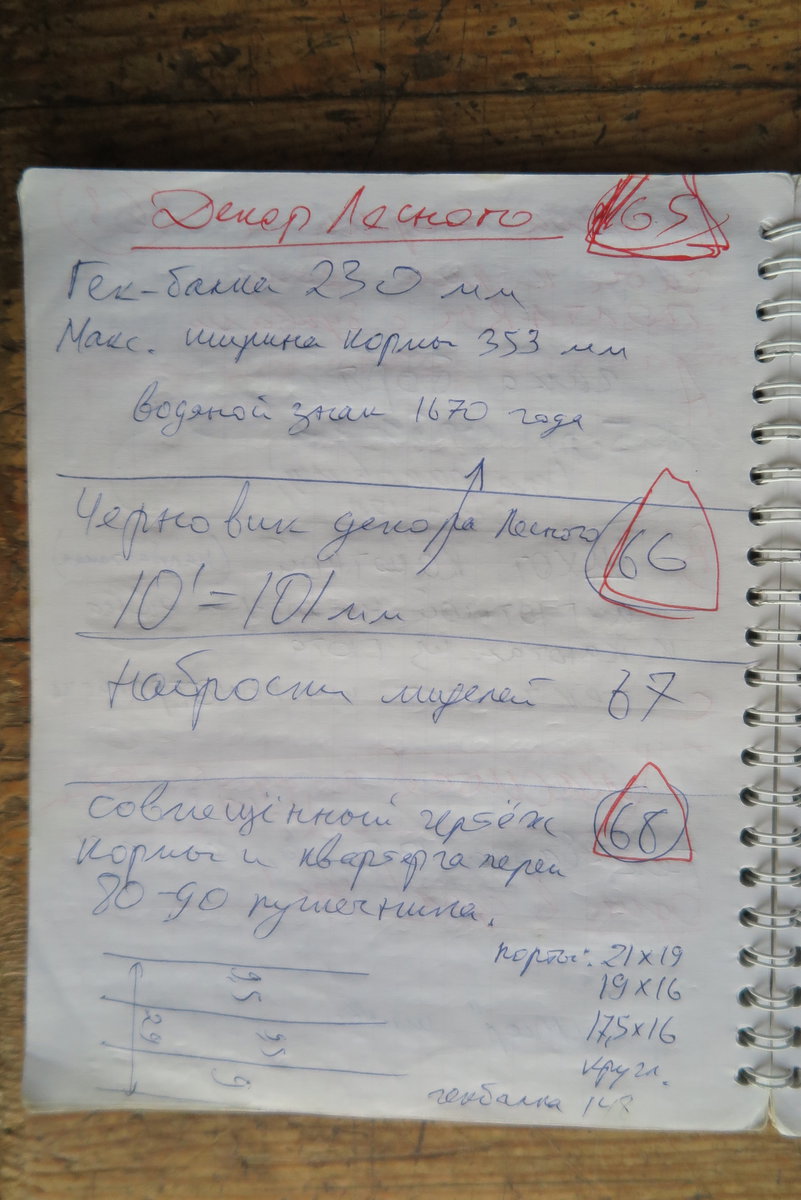 Декор Лесного 65
Гек-балка 230 мм
Макс. ширина кормы 353 мм
водяной знак 1670 года
Черновик декора Лесного 66
10' = 101 мм
Наброски миделей 67
совмещённый чертёж 68
кормы и квартергалереи
80-90 пушечника.
порты: 21x19
19x16
17,5x16
кругл.
гекбалка 148
9,5
29
9,5
9